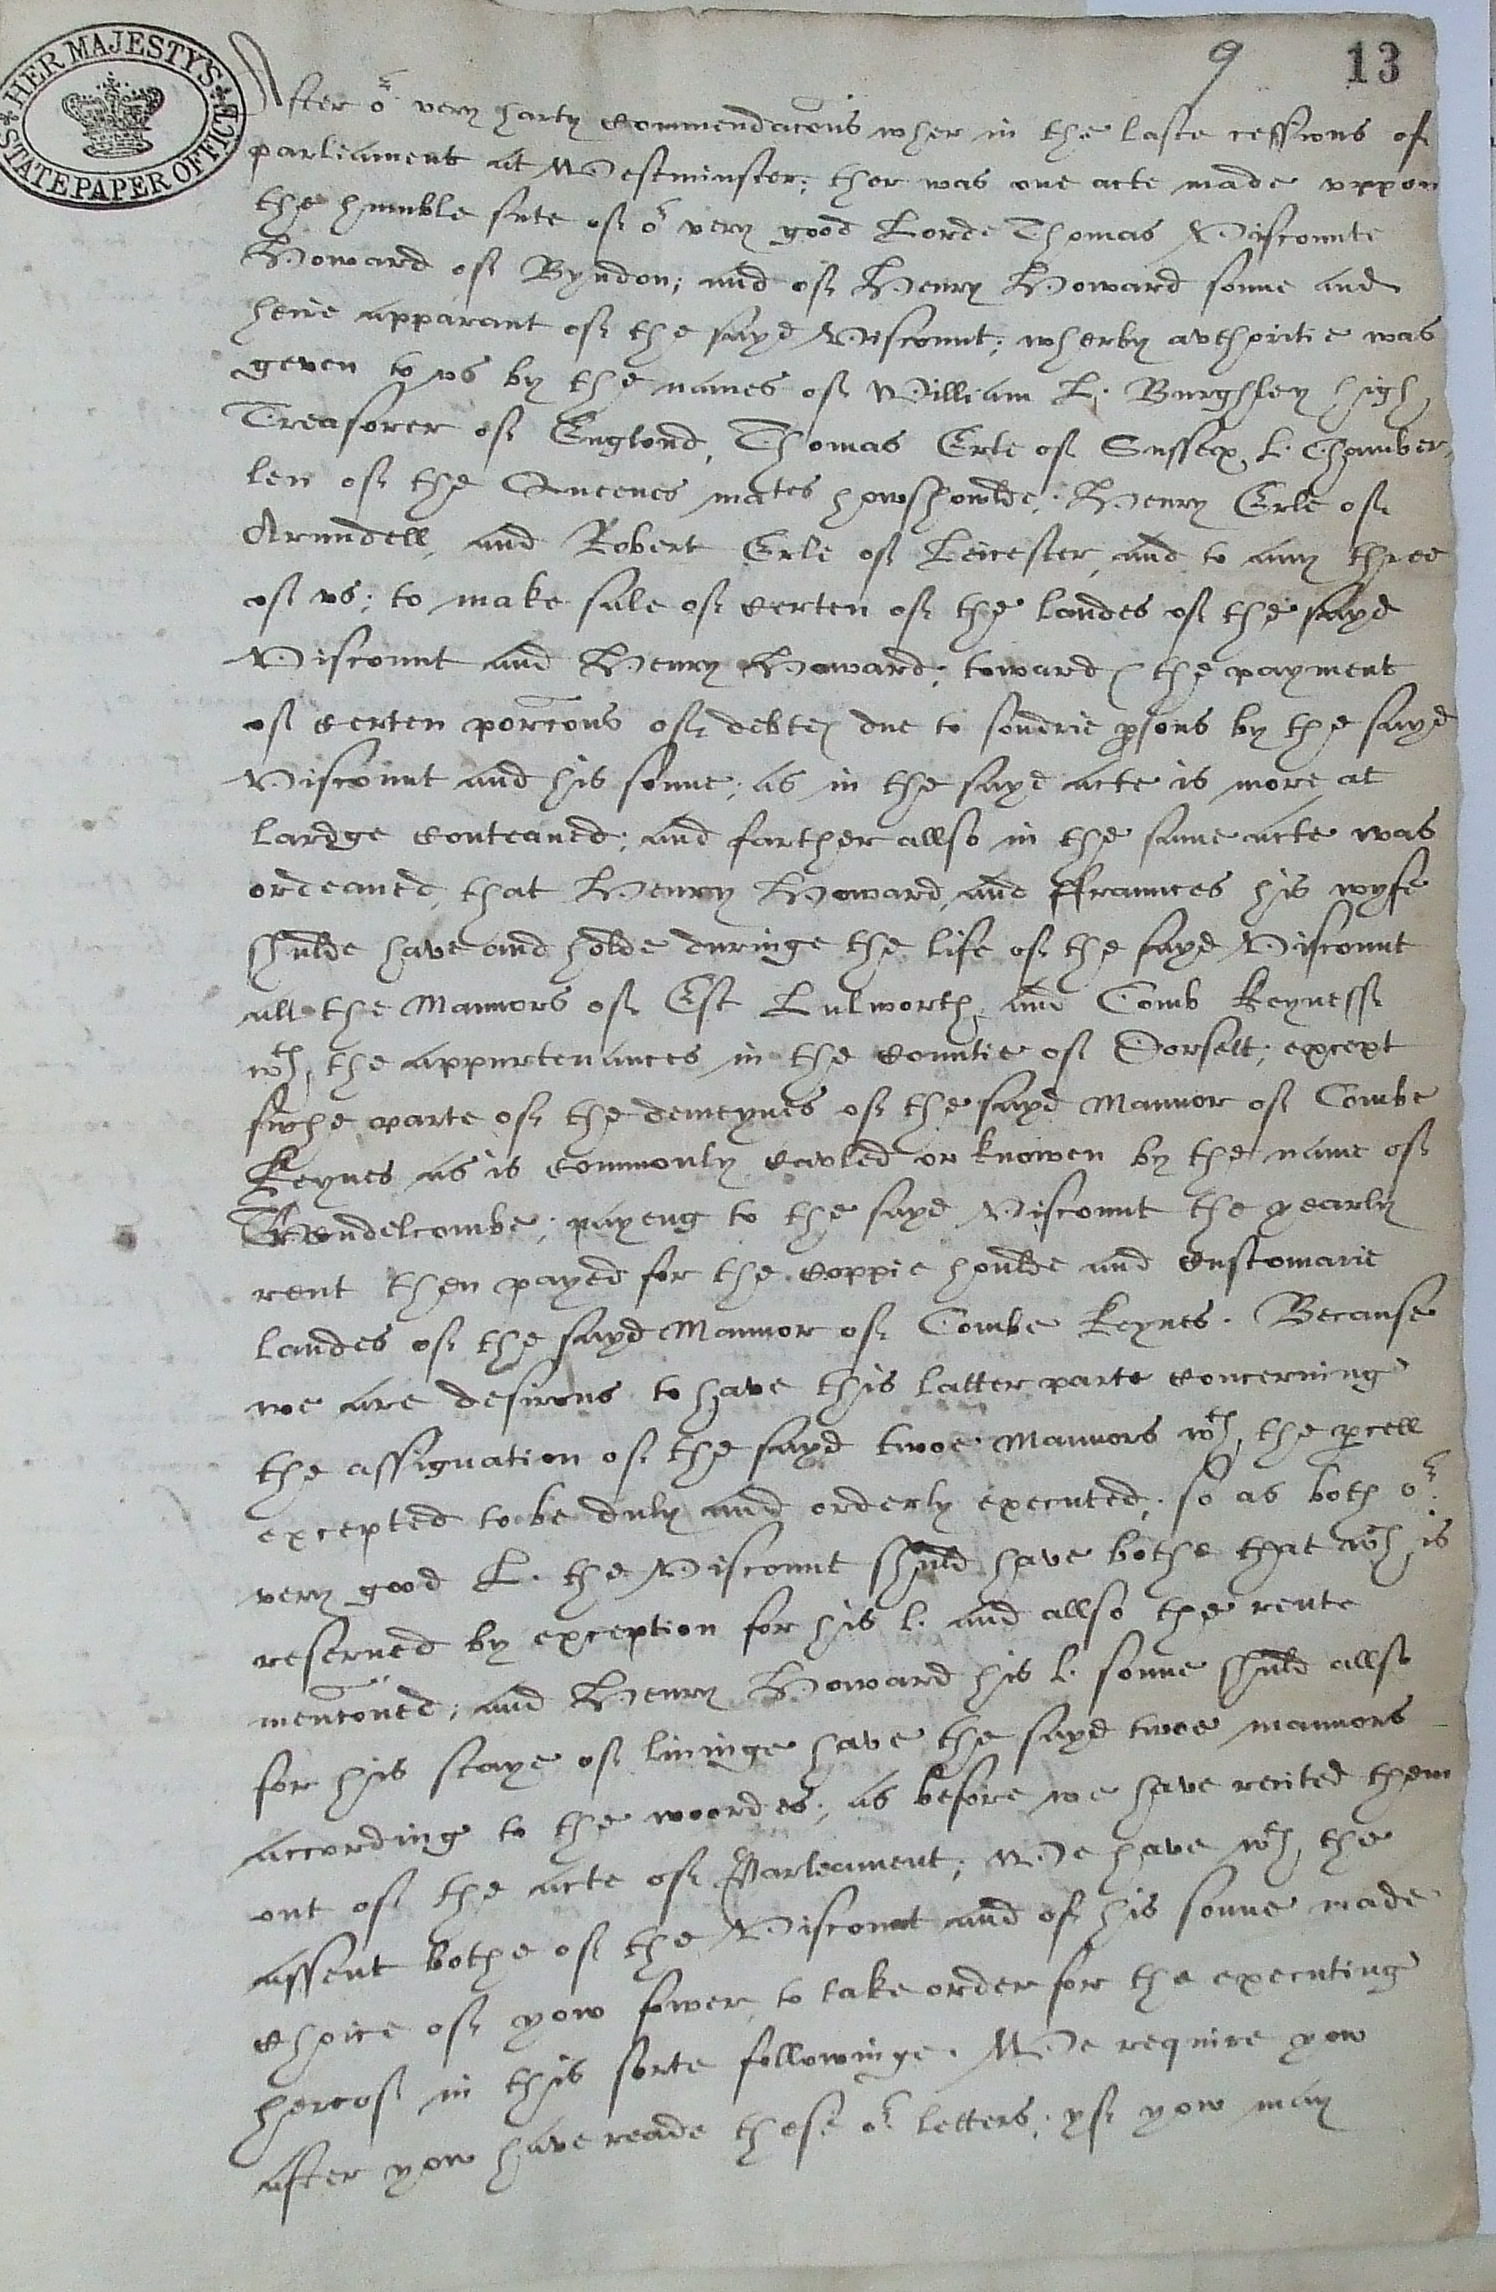 HER MAJESTY'S
STATE PAPER OFFICE
9 13
After or very harty commendacons wher in the laste cessions of
parliament at Westminster; ther was one acte made vppon
the humble sute of or very good Lorde Thomas Viscounte
Howard of Byndon; and of Henry Howard sonne and
heire apparant of the sayd Viscount; wherby avthoritie was
geven to vs by the names of William L. Burghley high
Treasorer of Englond, Thomas Erle of Sussex L. Chamber,
len of the Queenes mates howshowlde; Henry Erle of
Arundell, and Robert Erle of Leicester, and to any three
of vs; to make sale of certen of the landes of the sayd
Viscount and Henry Howard; towardes the payment
of certen porcons of debtes due to sondrie psons by the sayd
Viscount and his sonne; as in the sayd acte is more at
lardge conteaned; and farther allso in the same acte was
ordeaned, that Henry Howard, and ffraunces his wyfe
shulde have and holde duringe the life of the sayd Viscount
all the Mannors of Est Lulworth, and Comb Keynesse
wth, the appurtenances in the countie of Dorsett; except
suche parte of the demeynes of the sayd Mannor of Combe
Keynes as is commonly cavled or knowen by the name of
payeng to the sayd Viscount the yearly
rent then payed for the coppie houlde and customarie
landes of the sayd Mannor of Combe Keynes. Because
we are desirous to have this latter parte concerning
the assignation of the sayd twoe Mannors wth, the pcell
excepted to be duly and orderly executed; so as both or
very good L. the Viscount shuld have bothe that wch is
reserved by exception for his l. and allso the rente
menconed; and Henry Howard his l. sonne shuld allso
for his staye of livinge have the sayd twoe mannors
according to the woordes; as before we have recited them
out of the acte of Parleament; We have wth, the
assent bothe of the Viscount and of his sonne made
choice of yow fower, to take order for the executing
hereof in this sorte followinge. We require yow
after yow have reade these or letters; yf yow may